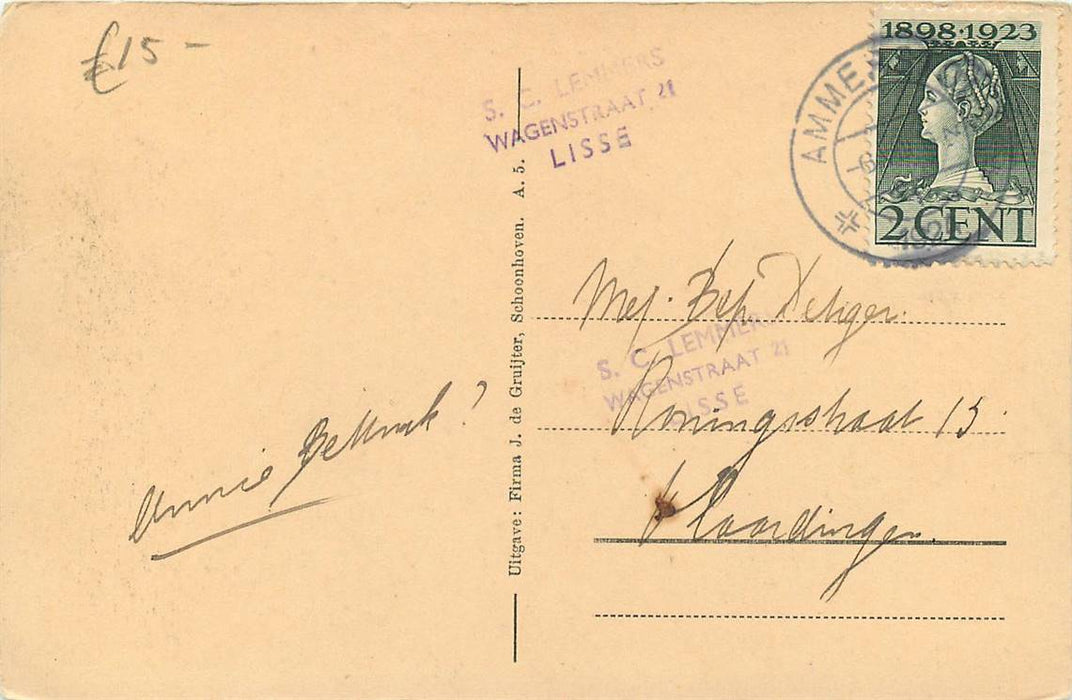 £15-
S. C. LEMMERS
WAGENSTRAAT 21
LISSE
1898·1923
2 CENT
AMME
Uitgave: Firma J. de Gruijter, Schoonhoven. A. 5.
Mej. Bep
S. C. LEMMERS
WAGENSTRAAT 21
LISSE
Koningsstraat 15
Vlaardingen.
Annie